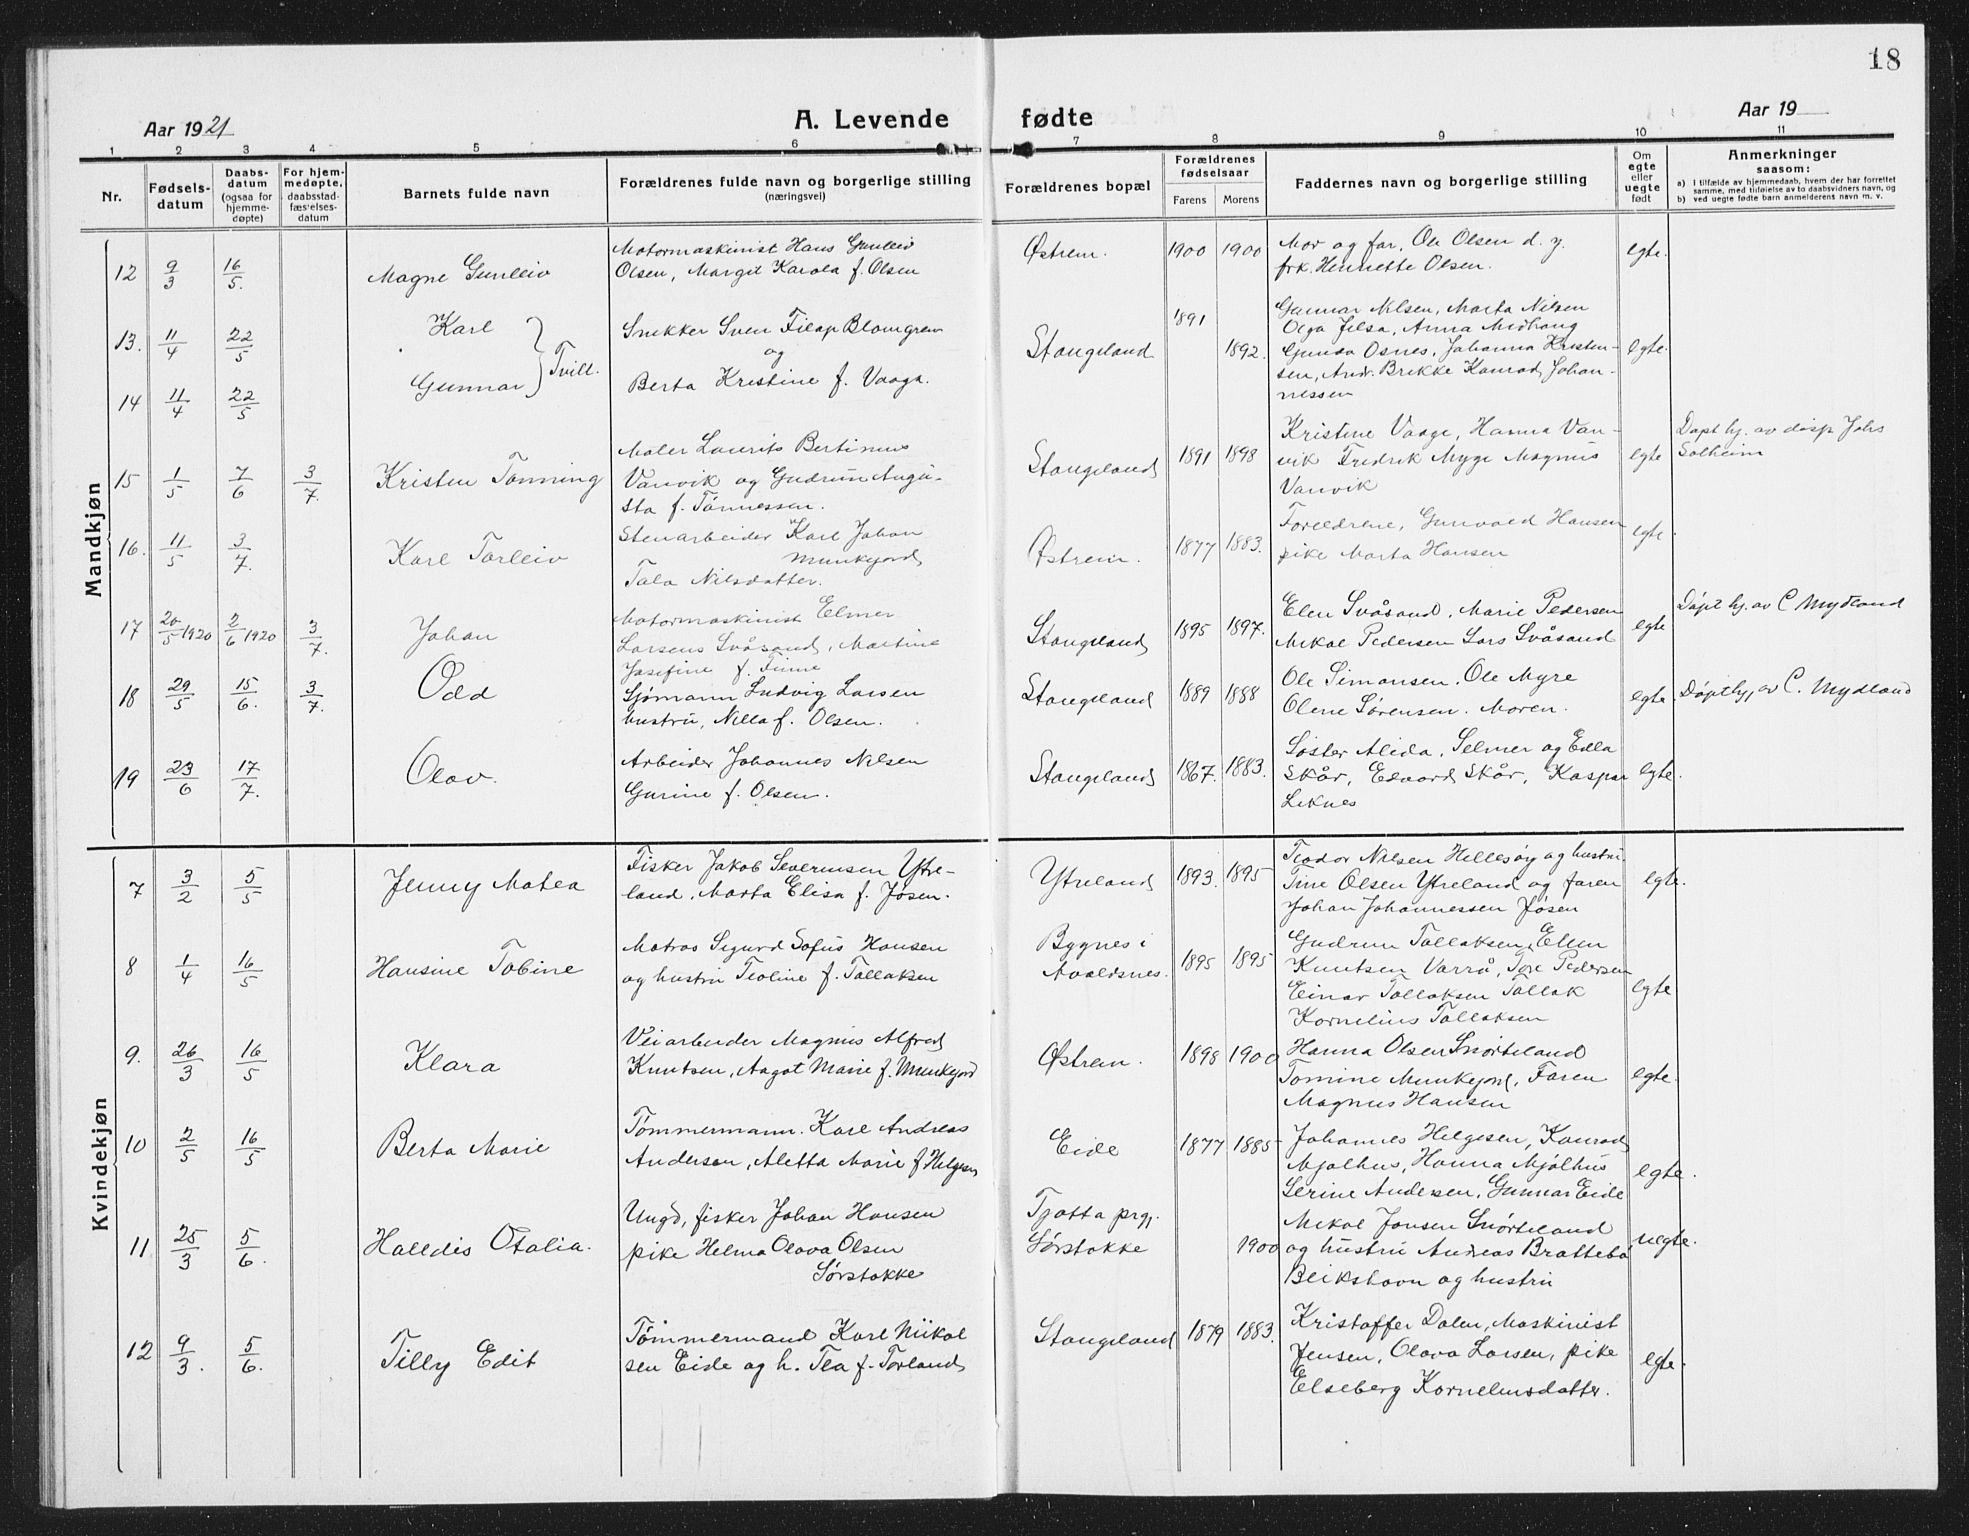 18
Aar 1921
A. Levende fødte
Aar 19
1 2 3 4 5 6 7 8 9 10 11
Nr.
Fødselsdatum
Daabsdatum (ogsaa for hjemmedøpte)
For hjemmedøpte, daabsstadfæstelsesdatum
Barnets fulde navn
Forældrenes fulde navn og borgerlige stilling (næringsvei)
Forældrenes bopæl
Forældrenes fødselsaar
Farens Morens
Faddernes navn og borgerlige stilling
Om egte eller uegte født
Anmerkninger saasom:
a) I tilfælde av hjemmedaab, hvem der har forrettet samme, med tilføielse av to daabsvidners navn, og
b) ved uegte fødte barn anmelderens navn m. v.
Mandkjøn
12 9/3 16/5. Magne Gunleiv
Motormaskinist Hans Gunleiv
Olsen, Margit Karola f. Olsen
Østrem. 1900 1900
Mor og far, Ole Olsen d. y.
frk. Henriette Olsen.
egte.
13. 11/4 22/5 Karl
14 11/4 22/5 Gunnar } Tvill.
Snekker Sven Filap Blomgren
og
Berta Kristine f. Vaaga.
Stangeland 1891 1892.
Gunnar Nilsen, Marta Nilsen
Olga Jelsa, Anna Midhaug
Gunda Osnes, Johanna Kristen-
sen, Andr. Brekke Konrad Johan-
nessen
egte.
15 1/5 7/6 3/7. Kristen Tønning
Maler Laurits Bertinius
Vanvik og Gudrun Augu-
sta f. Tønnessen.
Stangeland 1891 1898
Kristine Vaage, Hanna Van-
vik Fredrik Myge Magnus
Vanvik
egte
Døpt hj. av disp Johs
Solheim
16. 11/5 3/7. Karl Torleiv
Stenarbeider Karl Johan
Munkejord
Tala Nilsdatter.
Østrem. 1877 1883.
Forældrene, Gunvald Hansen
pike Marta Hansen
egte
17 20/5 1920 2/6 1920 3/7. Johan
Motormaskinist Elmer
Larsens Svåsand, Martine
Josefine f. Finne
Stangeland 1895 1897.
Elen Svåsand, Marie Pedersen
Mikal Pedersen Lars Svåsand
egte
Døpt hj. av C Mydland
18 29/5 15/6. 3/7. Odd
Sjømann Ludvig Larsen
hustru, Nilla f. Olsen.
Stangeland 1889 1888
Ole Simonsen. Ole Myre
Olene Sørensen. Moren.
egte.
Døpt hj, av C. Mydland
19 23/6 17/7. Olav.
Arbeider Johannes Nilsen
Gurine f. Olsen.
Stangeland 1867. 1883.
Søster Alida. Selmer og Edla
Skår, Edvard Skår, Kaspar
Liknes
egte.
Kvindekjøn
7 3/2 5/5 Jenny Matea
Fisker Jakob Severinsen Ytre-
land. Marta Elisa f. Jøsen.
Ytreland 1893. 1895
Teodor Nilsen Hellesøy og hustru.
Tine Olsen Ytreland og faren
Johan Johannessen Jøsen
egte.
8 1/4 16/5 Hansine Tobine
Matros Sigurd Sofus Hansen
og hustru Teoline f. Tallaksen
Bygnes i
Avaldsnes. 1895 1895
Gudrun Tallaksen, Elen
Knutsen Varrå, Tore Pedersen
Einar Tallaksen Tallak
Kornelius Tallaksen
egte
9. 26/3 16/5 Klara
Veiarbeider Magnus Alfred
Knutsen, Aagot Marie f. Munkejord
Østrem. 1898 1900
Hanna Olsen Snørteland
Tomine Munkejord, Faren
Magnus Hansen
egte.
10 2/5 16/5 Berta Marie
Tømmermann. Karl Andreas
Andersen, Aletta Marie f Helgesen
Eide 1877 1885
Johannes Helgesen, Konrad
Mjølhus, Hanna Mjølhus
Serine Andersen, Gunnar Eide
egte.
11 25/3 5/6. Halldis Otalia.
Ungd, fisker Johan Hansen
pike Helma Olava Olsen
Sørstokke
Tjøtta prgj.
Sørstokke 1900
Mikal Jonsen Snørteland
og hustru Andreas Brattebø
Bleikshavn og hustru
uegte.
12 9/3. 5/6. Tilly Edit
Tømmermand Karl Mikal
sen Eide og h. Tea f. Torland
Stangeland 1879 1883.
Kristoffer Dalen, Maskinist
Jensen, Olava Larsen, pike
Elseberg Korneliusdatter.
egte.